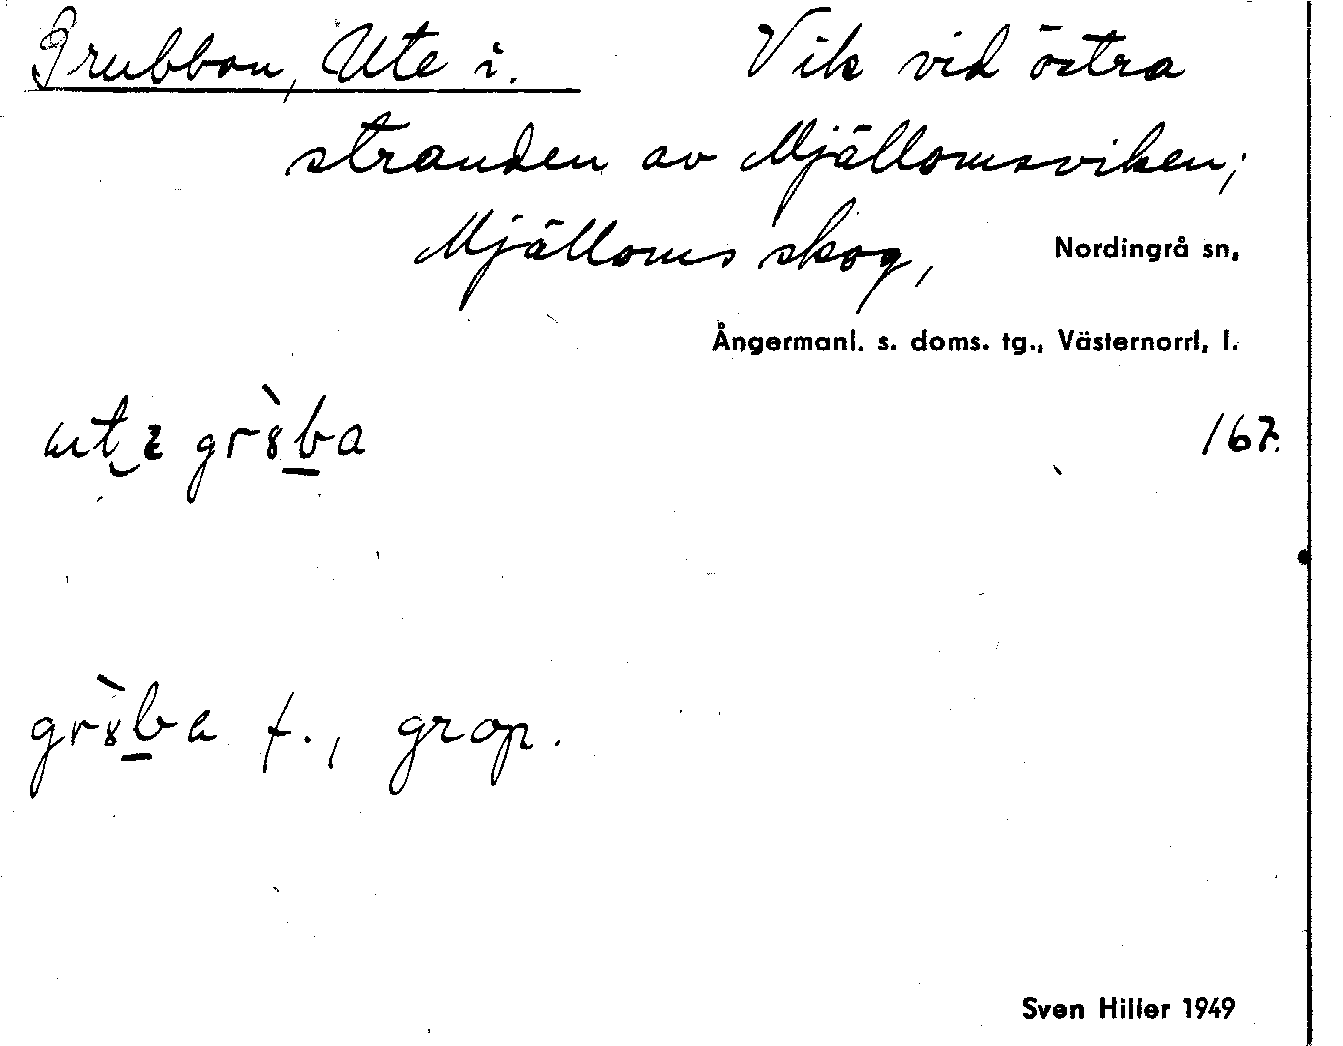 Grubban, Ute i. Vik vid östra
stranden av Mjällomsviken;
Mjälloms skog, Nordingrå sn,
Ångermanl. s. doms. tg., Västernorrl. l.
167.
f., grop.
Sven Hiller 1949